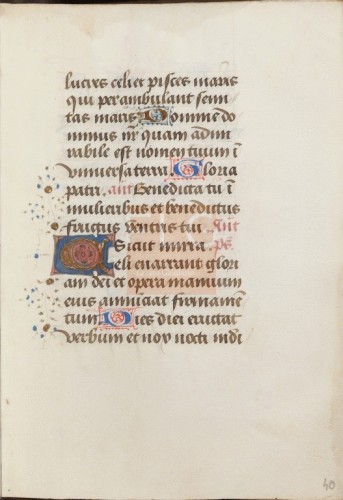 lucres celi et pisces maris
qui perambulant semi
tas maris Domine do
minus nr̄ quam admi
rabile est nomen tuum ī
universa terra. Gloria
patri. añt Benedicta tu ī
mulieribus et benedictus
fructus ventris tui. Añt
Sicut mirra. ps̄.
Celi enarrant glori
am dei et opera manuum
eius annūciat firmamē
tum Dies diei eructat
verbum et nox nocti indi
40